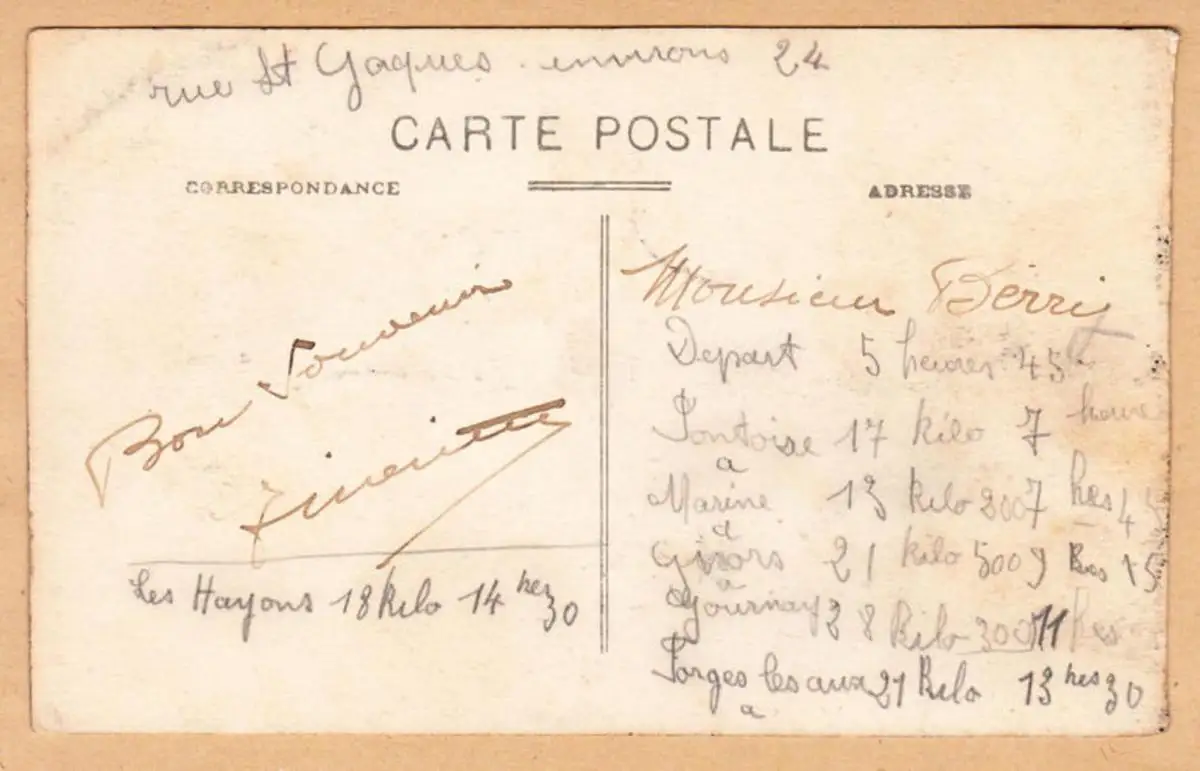 rue St Jaques environs 24
CARTE POSTALE
CORRESPONDANCE
ADRESSE
Bon Souvenir
Les Hayons 18 Kilo 14 hes 30
Monsieur Berri
Depart 5 heures 45
Pontoise 17 kilo 7 heure
a
Marine 13 kilo 200 7 hes 45
a
Gisors 21 kilo 500 9 hes 15
a
Gournay 28 kilo 300 11 hes
Forges les aux 21 Kilo 13 hes 30
a